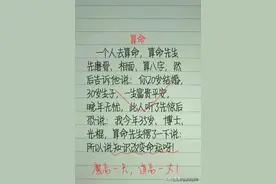 算命
一个人去算命，算命先生
先磨骨、相面、算八字，然
后告诉他说：你20岁结婚，
30岁生子，一生富贵平安，
晚年无忧，此人听了先惊后
恐说：我今年35岁、博士、
光棍，算命先生愣了一下说：
所以说知识改变命运呀！
魔高一尺，道高一丈！